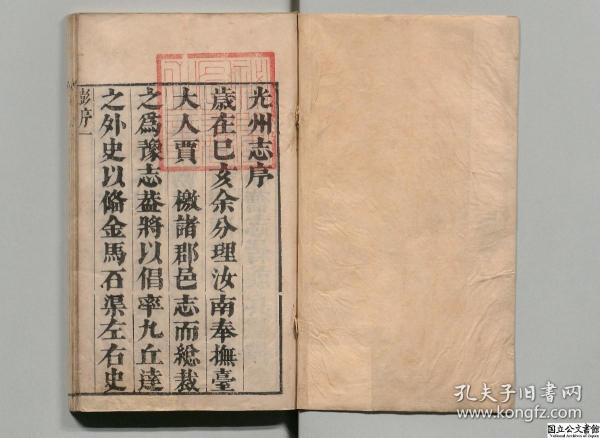 光州志序
歲在巳亥余分理汝南奉撫臺
大人賈　檄諸郡邑志而總裁
之爲豫志葢將以倡率九丘達
之外史以俻金馬石渠左右史
彭序
孔夫子旧书网
www.kongfz.com
国立公文書館
National Archives of Japan